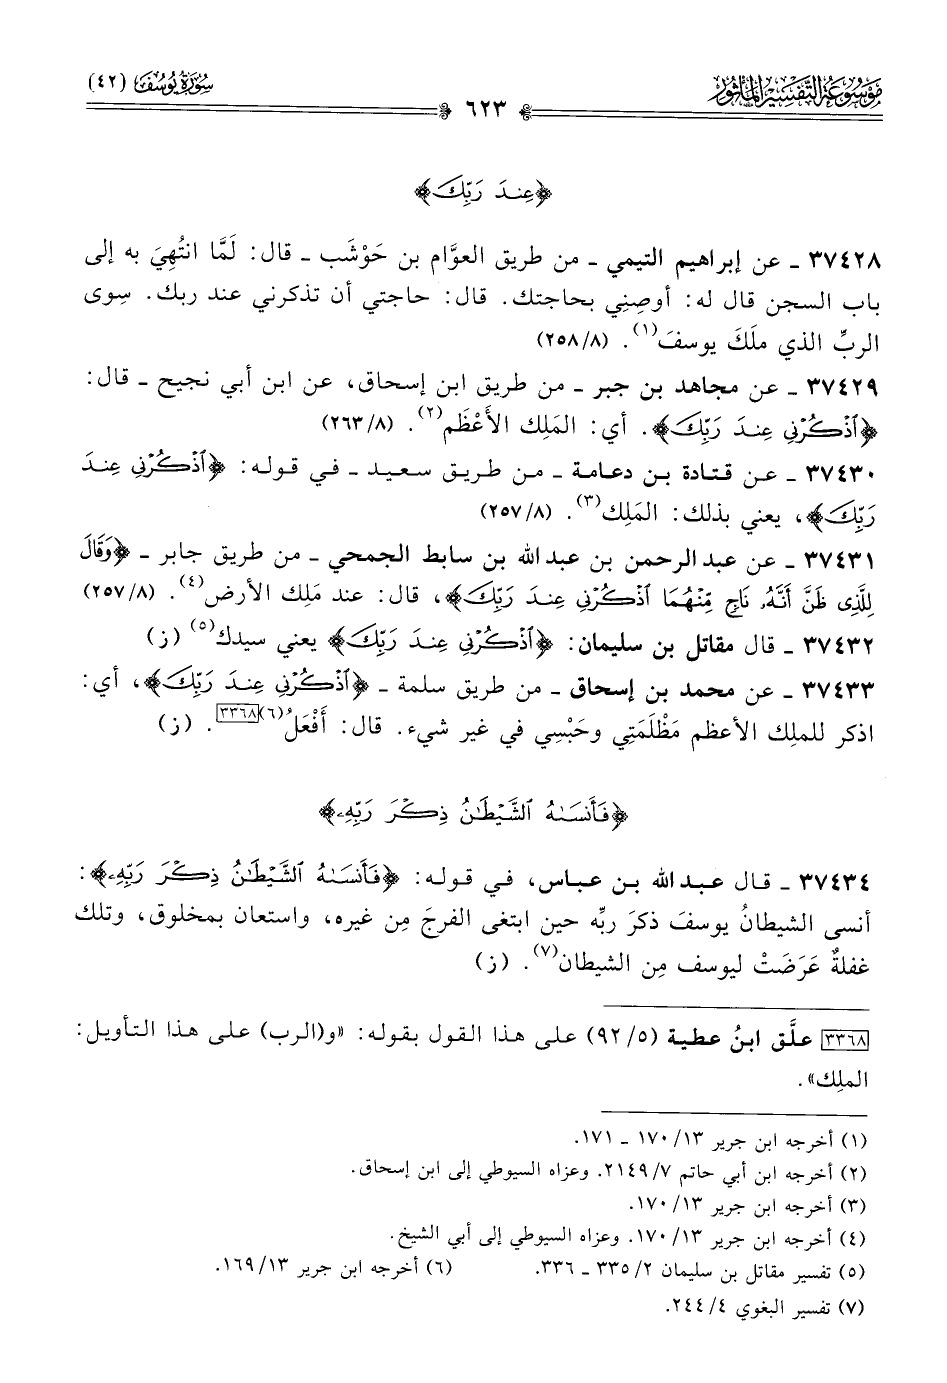 مَوْسُوعَةُ التَّفْسِيرِ المَأْثُورِ
سُورَةُ يُوسُفَ (٤٢)
٦٢٣
﴿عِندَ رَبِّكَ﴾
٣٧٤٢٨ ـ عن إبراهيم التيمي ـ من طريق العوَّام بن حَوْشَب ـ قال: لَمَّا انتُهِيَ به إلى
باب السجن قال له: أوصِنِي بحاجتك. قال: حاجتي أن تذكرني عند ربك. سِوى
الربِّ الذي ملَكَ يوسفَ(١). (٢٥٨/٨)
٣٧٤٢٩ ـ عن مجاهد بن جبر ـ من طريق ابن إسحاق، عن ابن أبي نجيح ـ قال:
﴿ٱذْكُرْنِي عِندَ رَبِّكَ﴾. أي: المَلِك الأَعْظَم(٢). (٢٦٣/٨)
٣٧٤٣٠ ـ عن قتادة بن دعامة ـ من طريق سعيد ـ في قوله: ﴿ٱذْكُرْنِي عِندَ
رَبِّكَ﴾، يعني بذلك: المَلِك(٣). (٢٥٧/٨)
٣٧٤٣١ ـ عن عبد الرحمن بن عبد الله بن سابط الجمحي ـ من طريق جابر ـ ﴿وَقَالَ
لِلَّذِى ظَنَّ أَنَّهُۥ نَاجٍ مِّنْهُمَا ٱذْكُرْنِي عِندَ رَبِّكَ﴾، قال: عند مَلِك الأرض(٤). (٢٥٧/٨)
٣٧٤٣٢ ـ قال مقاتل بن سليمان: ﴿ٱذْكُرْنِي عِندَ رَبِّكَ﴾ يعني سيدك(٥) (ز)
٣٧٤٣٣ ـ عن محمد بن إسحاق ـ من طريق سلمة ـ ﴿ٱذْكُرْنِي عِندَ رَبِّكَ﴾، أي:
اذكر للملِك الأعظم مَظْلَمَتِي وحَبْسِي في غير شيء. قال: أَفْعَلُ(٦)[٣٣٦٨]. (ز)
﴿فَأَنسَىٰهُ ٱلشَّيْطَٰنُ ذِكْرَ رَبِّهِۦ﴾
٣٧٤٣٤ ـ قال عبد الله بن عباس، في قوله: ﴿فَأَنسَىٰهُ ٱلشَّيْطَٰنُ ذِكْرَ رَبِّهِۦ﴾:
أنسى الشيطانُ يوسفَ ذكرَ ربِّه حين ابتغى الفرجَ مِن غيره، واستعان بمخلوق، وتلك
غفلةٌ عَرَضَتْ ليوسف مِن الشيطان(٧). (ز)
[٣٣٦٨] علَّق ابنُ عطية (٩٢/٥) على هذا القول بقوله: «و(الرب) على هذا التأويل:
الملِك».
(١) أخرجه ابن جرير ١٧٠/١٣ ـ ١٧١.
(٢) أخرجه ابن أبي حاتم ٢١٤٩/٧. وعزاه السيوطي إلى ابن إسحاق.
(٣) أخرجه ابن جرير ١٧٠/١٣.
(٤) أخرجه ابن جرير ١٧٠/١٣. وعزاه السيوطي إلى أبي الشيخ.
(٥) تفسير مقاتل بن سليمان ٣٣٥/٢ ـ ٣٣٦.
(٦) أخرجه ابن جرير ١٦٩/١٣.
(٧) تفسير البغوي ٢٤٤/٤.